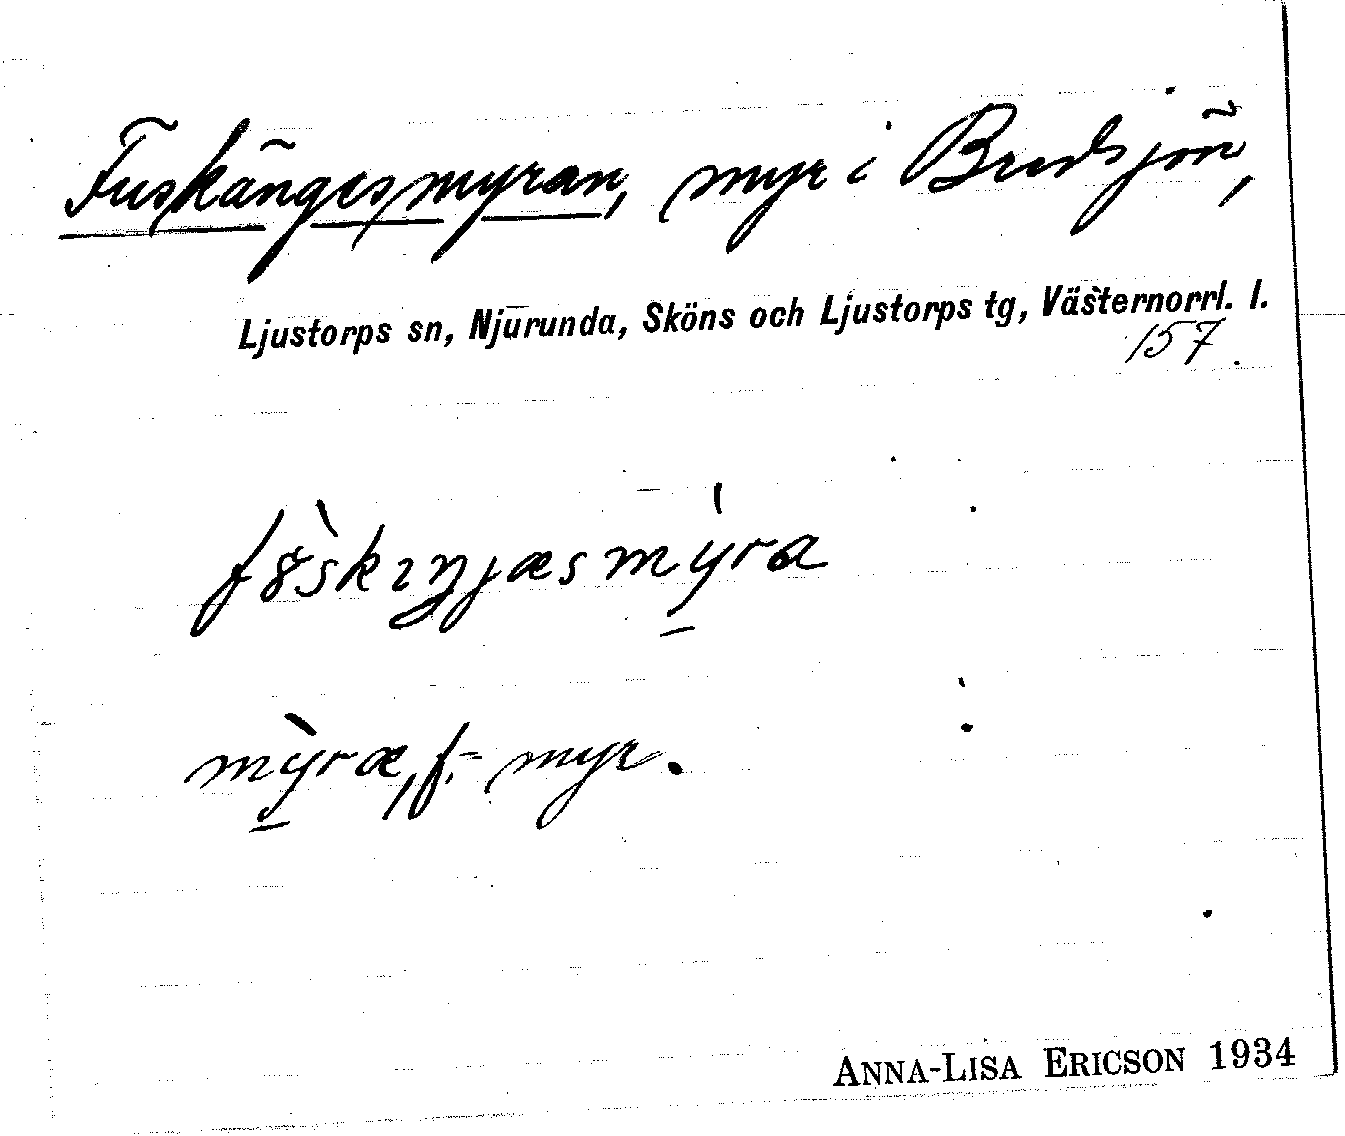 Fuskängesmyran, myr i Bredsjön,
Ljustorps sn, Njurunda, Sköns och Ljustorps tg, Västernorrl. l.
157.
fö̀skıŋjæsmýra
mỳræ, f. = myr.
ANNA-LISA ERICSON 1934